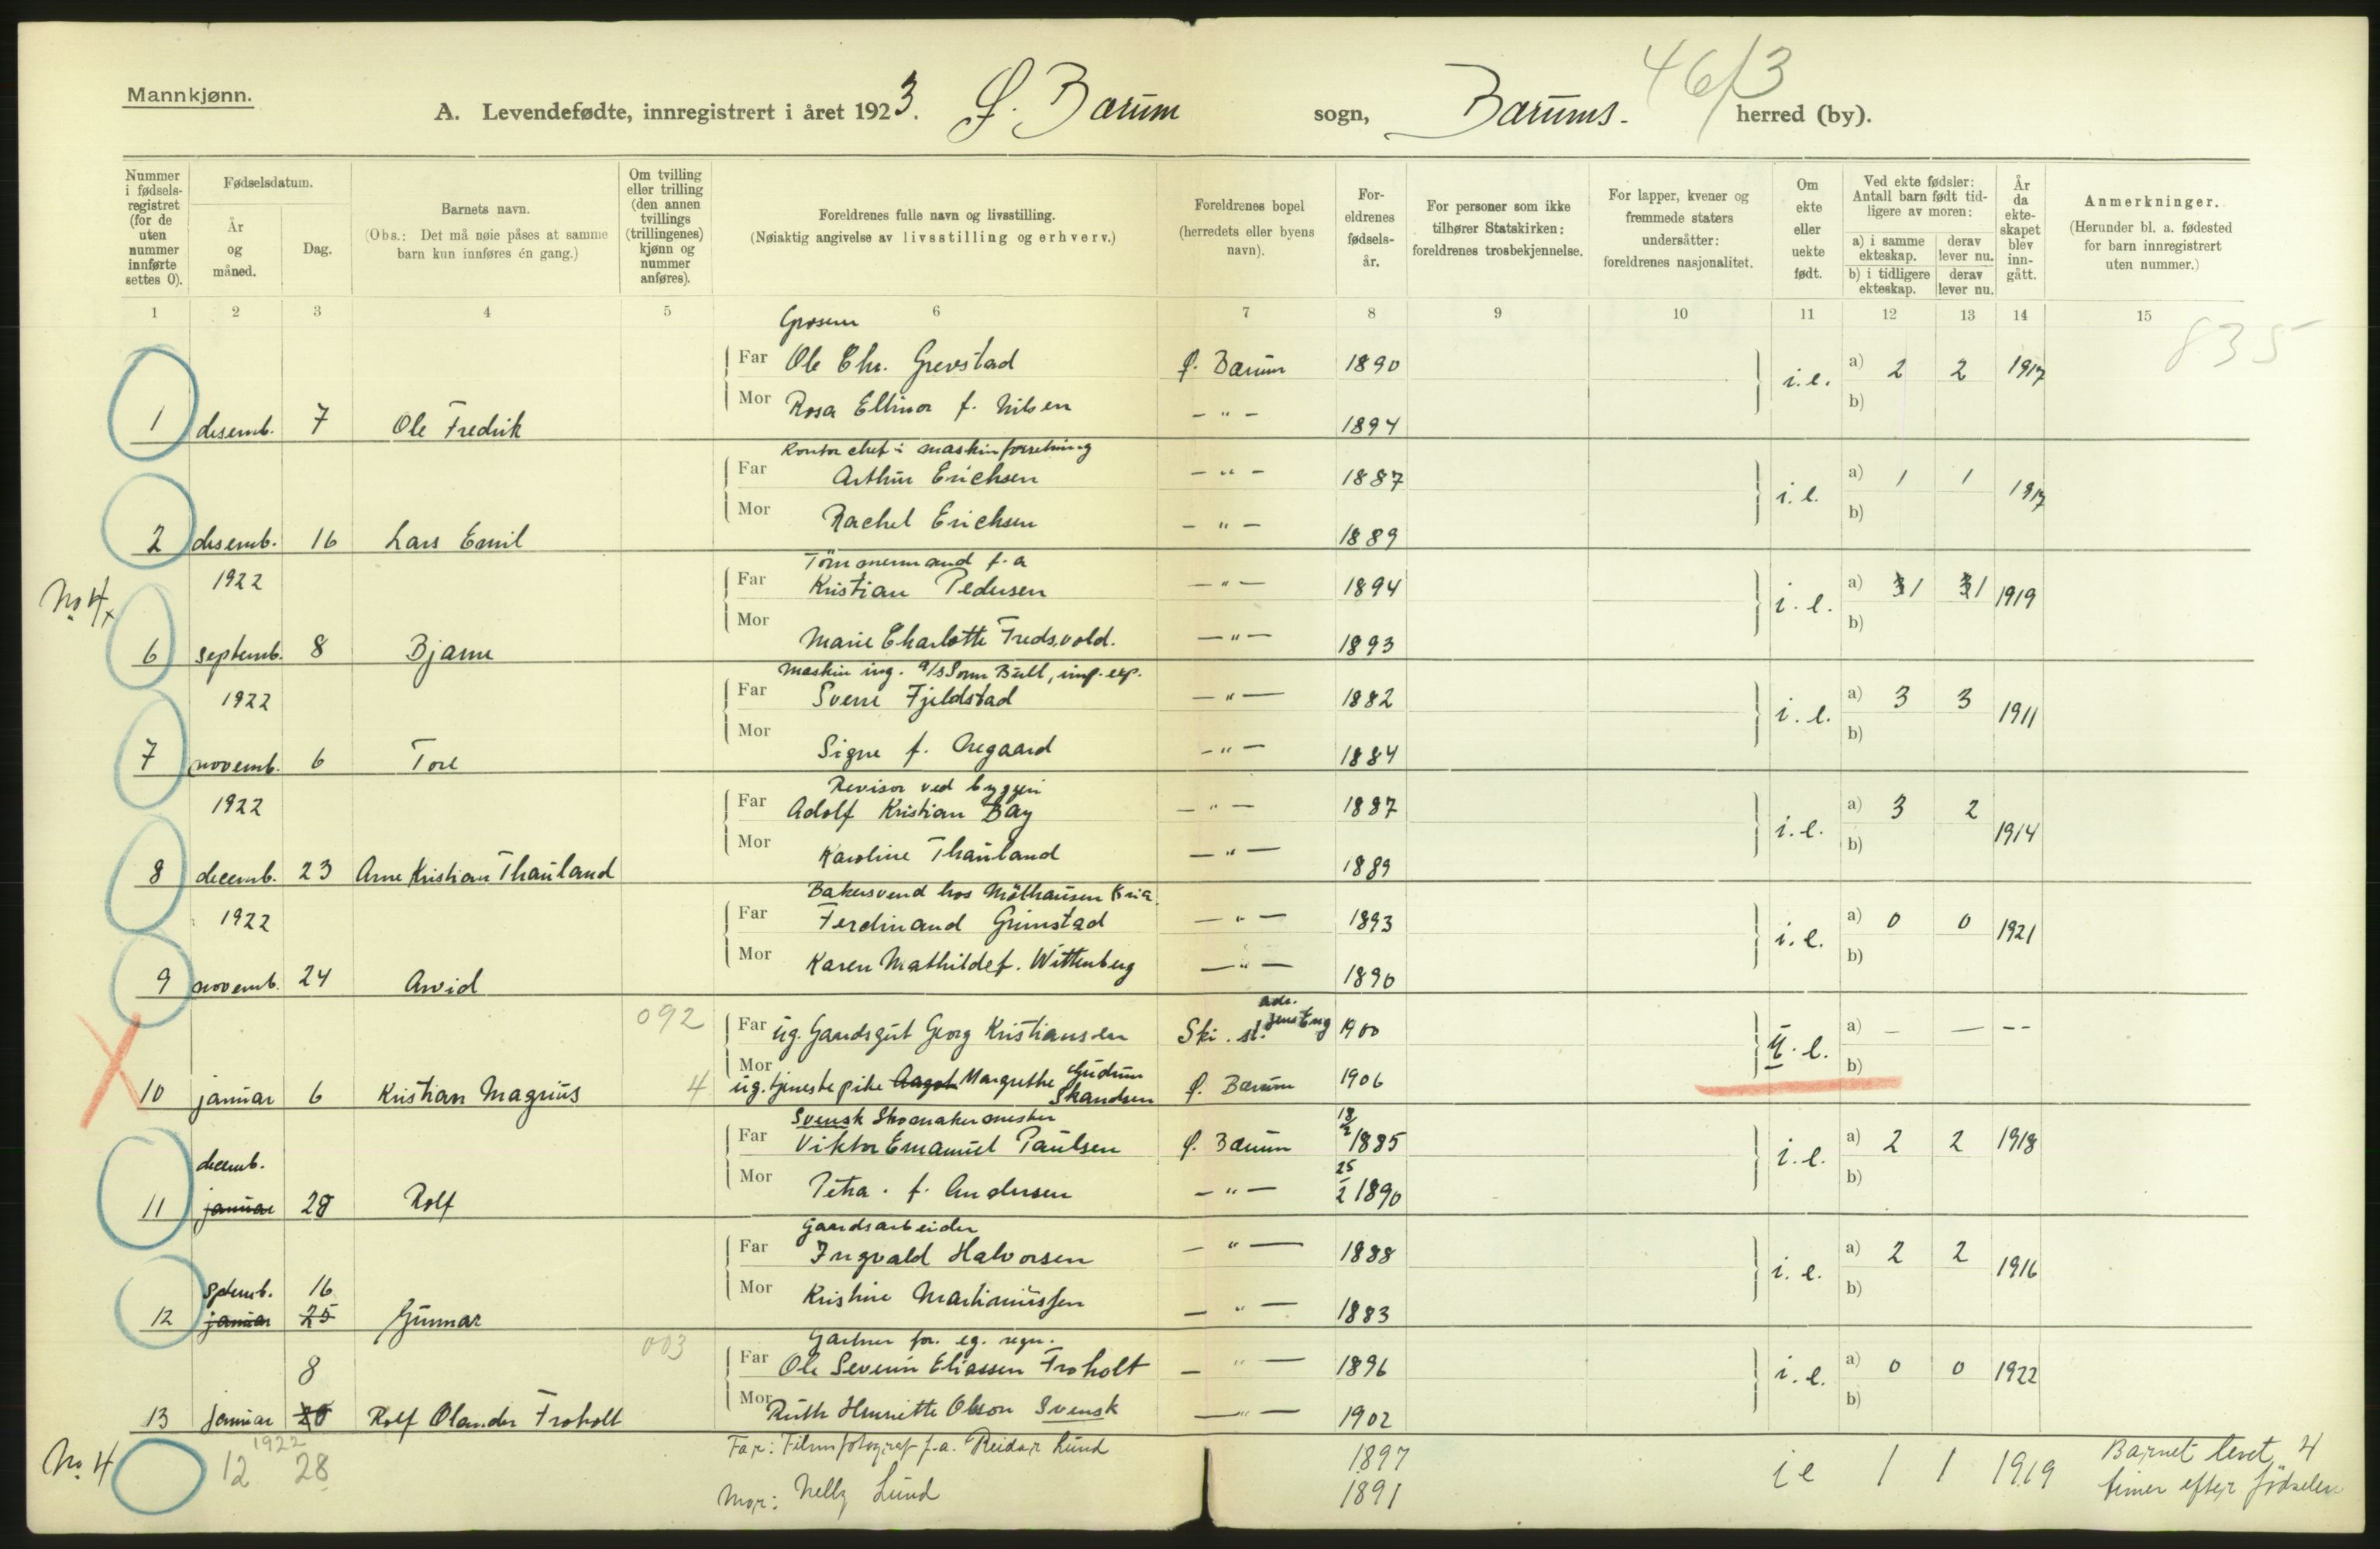 46/3
Mannkjønn.
A. Levendefødte, innregistrert i året 1923. Ø. Bærum sogn, Bærums. herred (by).
Nummer i fødsels-registret (for de uten nummer innførte settes 0).
Fødselsdatum.
År og måned.
Dag.
Barnets navn.
(Obs.: Det må nøie påses at samme barn kun innføres én gang.)
Om tvilling eller trilling (den annen tvillings (trillingenes) kjønn og nummer anføres).
Foreldrenes fulle navn og livsstilling.
(Nøiaktig angivelse av livsstilling og erhverv.)
Foreldrenes bopel (herredets eller byens navn).
For-eldrenes fødsels-år.
For personer som ikke tilhører Statskirken: foreldrenes trosbekjennelse.
For lapper, kvener og fremmede staters undersåtter: foreldrenes nasjonalitet.
Om ekte eller uekte født.
Ved ekte fødsler: Antall barn født tid-ligere av moren:
a) i samme ekteskap. derav lever nu.
b) i tidligere ekteskap. derav lever nu.
År da ekte-skapet blev inn-gått.
Anmerkninger.
(Herunder bl. a. fødested for barn innregistrert uten nummer.)
1 2 3 4 5 6 7 8 9 10 11 12 13 14 15
835
Grosem
Far Ole Chr. Grevstad Ø. Bærum 1890 i.e. a) 2 2 1917
Mor Rosa Ellinor f. Nilsen — " — 1894 b)
1 desemb. 7 Ole Fredrik
Kontorchef i maskinforretning
Far Arthur Erichsen — " — 1887 i.e. a) 1 1 1917
Mor Rachel Erichsen — " — 1889 b)
2 desemb. 16 Lars Emil
Tömmermand f.a
1922 Far Kristian Pedersen — " — 1894 i.e. a) 3 1 3 1 1919
No 4 x
Mor Marie Charlotte Fredsvold. — " — 1893 b)
6 septemb. 8 Bjarne
Maskin ing. a/s Sørm Bull, imp. exp.
1922 Far Sverre Fjeldstad — " — 1882 i.e. a) 3 3 1911
Mor Signe f. Aegaard — " — 1884 b)
7 novemb. 6 Tore
Revisor ved byggeri
1922 Far Adolf Kristian Bay — " — 1887 i.e. a) 3 2 1914
Mor Karoline Thauland — " — 1889 b)
8 decemb. 23 Arne Kristian Thauland
Bakersvend hos Möthausen Kria.
1922 Far Ferdinand Grimstad — " — 1893 i.e. a) 0 0 1921
Mor Karen Mathilde f. Wittenberg — " — 1890 b)
9 novemb. 24 Arvid
092 Far ug. Gaardsgut Georg Kristiansen Ski. st. adr. Jens Eng 1900 u.e. a) — — --
Mor ug. tjenestepike Aagot Margrethe Gudrun Skandsen Ø. Bærum 1906 b)
10 januar 6 Kristian Magnus 4
Svensk Skomakermester
Far Viktor Emanuel Paulsen Ø. Bærum 18/2 1885 i.e. a) 2 2 1918
decemb.
Mor Petra. f. Andersen — " — 25/2 1890 b)
11 januar 28 Rolf
Gaardsarbeider
Far Ingvald Halvorsen — " — 1888 i.e. a) 2 2 1916
septemb. 16
Mor Kristine Martiniussen — " — 1883 b)
12 januar 25 Gunnar
Gartner for. eg. regn.
003 Far Ole Severin Eliassen Froholt — " — 1896 i.e. a) 0 0 1922
8
Mor Ruth Henriette Olsson Svensk — " — 1902 b)
13 januar 20 Rolf Olander Froholt
1922
No 4 12 28 Far: Filmfotograf f.a. Reidar Lund 1897 i e 1 1 1919 Barnet levet 4
Mor: Nelly Lund 1891 timer efter födselen